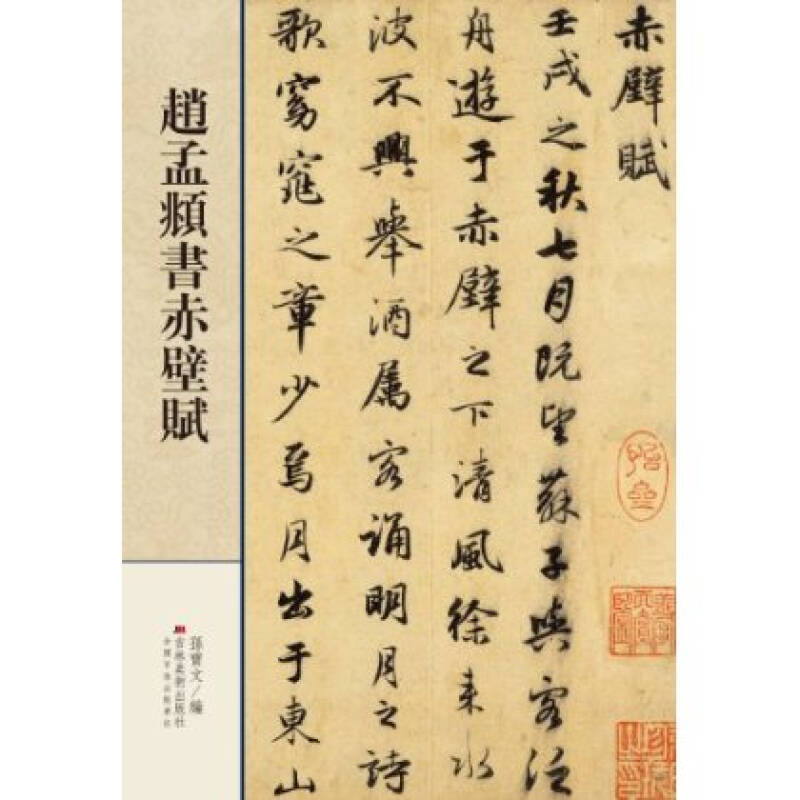 赤壁賦
壬戌之秋七月既望蘇子與客泛
舟遊于赤壁之下清風徐來水
波不興舉酒属客誦明月之詩
歌窈窕之章少焉月出于東山
趙孟頫書赤壁賦
孫寶文/編
吉林美術出版社